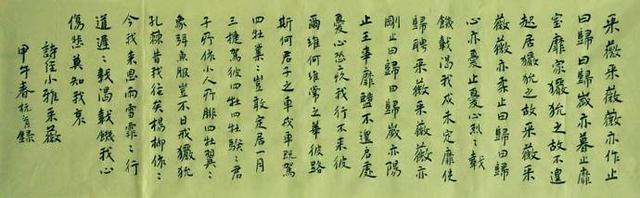 采薇采薇薇亦作止
曰歸曰歸歲亦暮止靡
室靡家玁狁之故不遑
起居玁狁之故采薇采
薇薇亦柔止曰歸曰歸
心亦憂止憂心烈〻載
飢載渴我戍未定靡使
歸聘采薇采薇薇亦
剛止曰歸曰歸歲亦陽
止王事靡盬不遑启處
憂心孔疚我行不來彼
爾維何維常之華彼路
斯何君子之車戎車既駕
四牡業〻豈敢定居一月
三捷駕彼四牡四牡騤〻君
子所依小人所腓四牡翼〻
象弭魚服豈不日戒玁狁
孔棘昔我往矣楊柳依〻
今我來思雨雪霏〻行
道遲〻載渴載飢我心
傷悲莫知我哀
詩经小雅采薇
甲午春錄